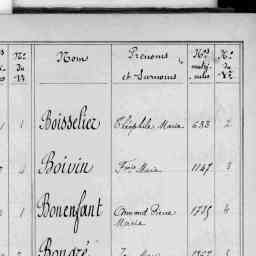 Nos Nos du Vt Nom Prénoms et Surnoms Nos matri- cules No du Vt
1 Boisselier Théophile Marie 633 2
4 Boivin Frois Marie 1147 3
1 Bonenfant Armand Pierre Marie 1735 4
Bougré